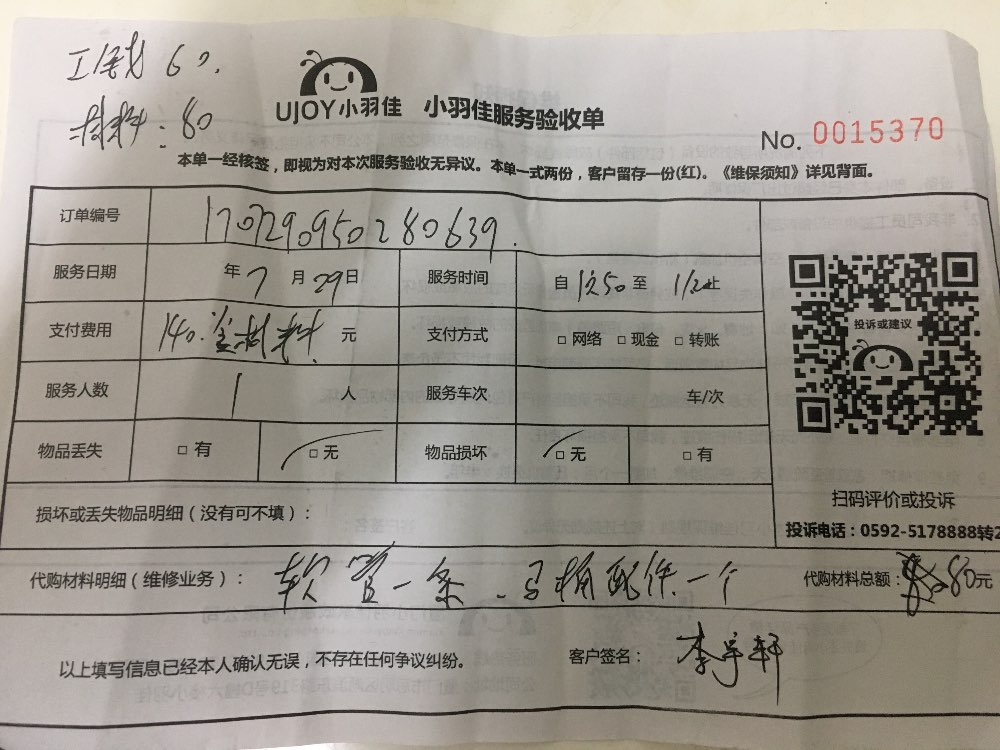 工钱60.
材料:80
UJOY小羽佳 小羽佳服务验收单
No. 0015370
本单一经核签，即视为对本次服务验收无异议。本单一式两份，客户留存一份(红)。《维保须知》详见背面。
订单编号 1707290950280639.
服务日期 年 7 月 29 日 服务时间 自 至 止
支付费用 140. 含材料 元 支付方式 □ 网络 □ 现金 □ 转账
服务人数 1 人 服务车次 车/次
物品丢失 □ 有 □ 无 物品损坏 □ 无 □ 有
损坏或丢失物品明细（没有可不填）:
代购材料明细（维修业务）: 软管一条、马桶配件一个 代购材料总额: 80元
以上填写信息已经本人确认无误，不存在任何争议纠纷。 客户签名: 李宇轩
投诉或建议
扫码评价或投诉
投诉电话：0592-5178888转2